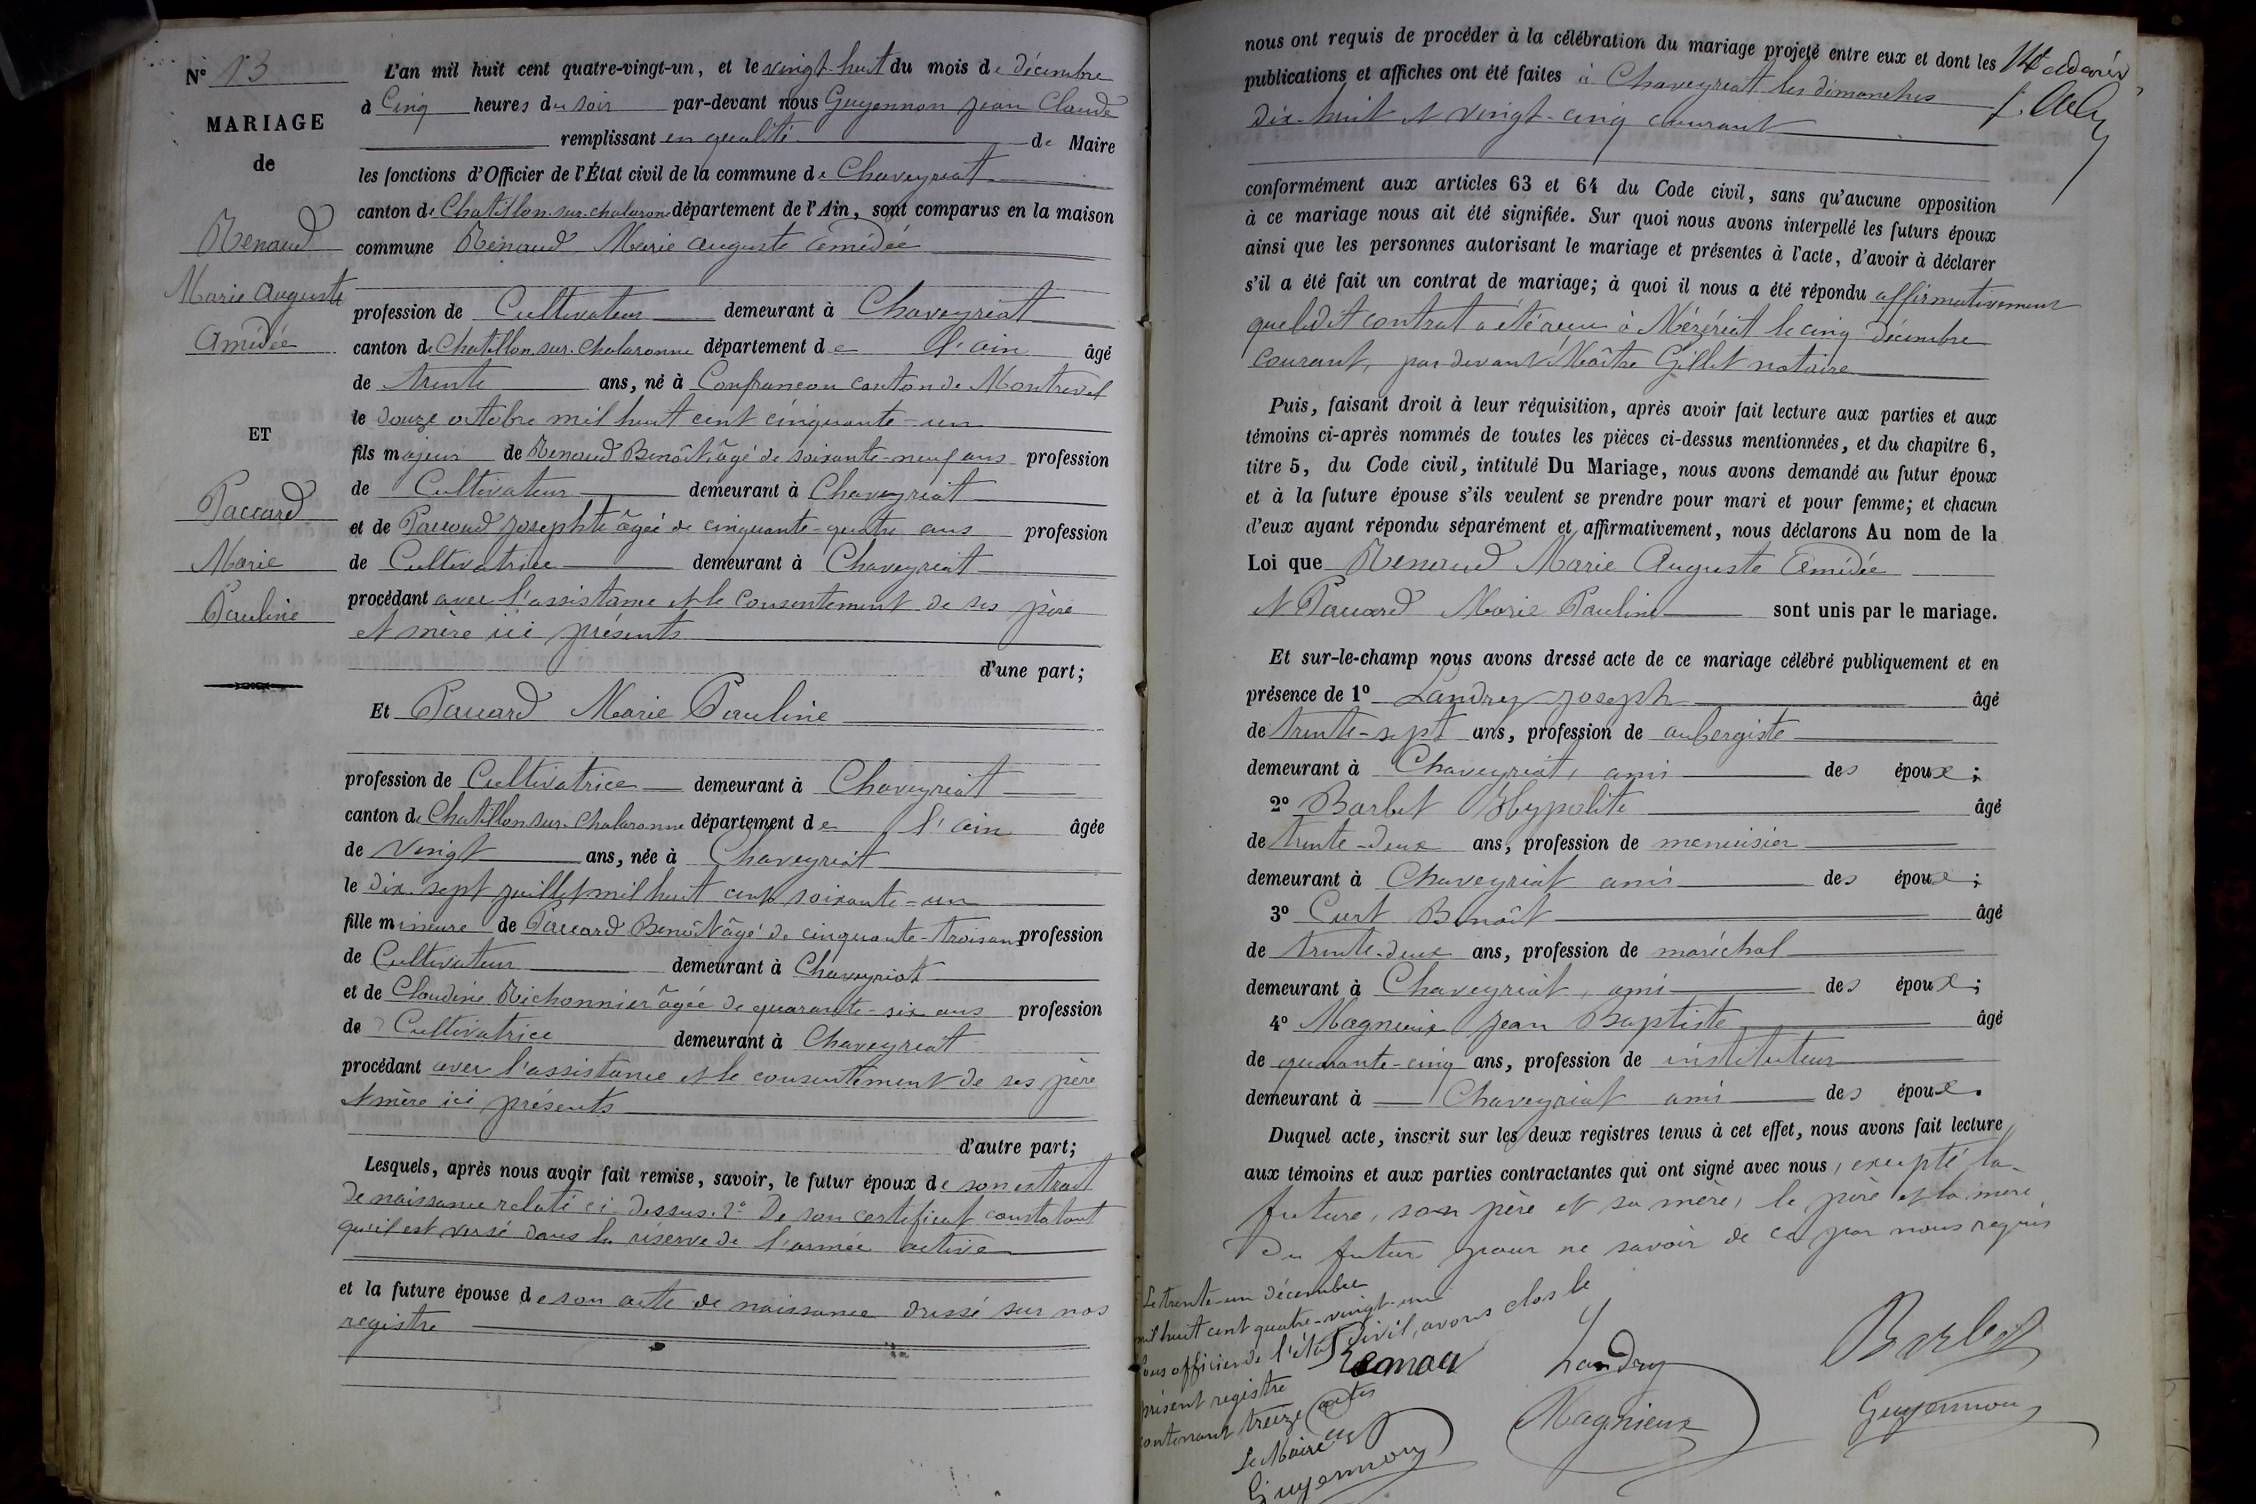 N° 13
MARIAGE
de
Renaud
Marie Auguste
Amédée
ET
Paccard
Marie
Pauline
L'an mil huit cent quatre-vingt-un, et le vingt-huit du mois de décembre
à Cinq heures du soir par-devant nous Guyennon Jean Claude
remplissant en qualité de Maire
les fonctions d'Officier de l'État civil de la commune de Chaveyriat
canton de Chatillon-sur-chalaronne département de l'Ain, sont comparus en la maison
commune Renaud Marie Auguste Amédée
profession de Cultivateur demeurant à Chaveyriat
canton de Chatillon sur Chalaronne département de l'ain âgé
de trente ans, né à Confrancon canton de Montrevel
le douze octobre mil huit cent cinquante-un
fils majeur de Renaud Benoît âgé de soixante-neuf ans profession
de Cultivateur demeurant à Chaveyriat
et de Josephte âgée de cinquante-quatre ans profession
de Cultivatrice demeurant à Chaveyriat
procédant avec l'assistance et le consentement de ses père
et mère ici présents
d'une part;
Et Paccard Marie Pauline
profession de Cultivatrice demeurant à Chaveyriat
canton de Chatillon sur Chalaronne département de l'ain âgée
de Vingt ans, née à Chaveyriat
le dix-sept juillet mil huit cent soixante-un
fille mineure de Paccard Benoît âgé de cinquante-trois ans profession
de Cultivateur demeurant à Chaveyriat
et de Claudine Richonnier âgée de quarante-six ans profession
de Cultivatrice demeurant à Chaveyriat
procédant avec l'assistance et le consentement de ses père
et mère ici présents
d'autre part;
Lesquels, après nous avoir fait remise, savoir, le futur époux de son extrait
de naissance relaté ci-dessus. 2° De son certificat constatant
qu'il est versé dans la réserve de l'armée active
et la future épouse de son acte de naissance dressé sur nos
registre
nous ont requis de procéder à la célébration du mariage projeté entre eux et dont les
publications et affiches ont été faites à Chaveyriat les dimanches
dix-huit et vingt-cinq courant
conformément aux articles 63 et 64 du Code civil, sans qu'aucune opposition
à ce mariage nous ait été signifiée. Sur quoi nous avons interpellé les futurs époux
ainsi que les personnes autorisant le mariage et présentes à l'acte, d'avoir à déclarer
s'il a été fait un contrat de mariage; à quoi il nous a été répondu affirmativement
que ledit contrat a été reçu à Mézériat le cinq décembre
courant, par devant Maître Gillet notaire
Puis, faisant droit à leur réquisition, après avoir fait lecture aux parties et aux
témoins ci-après nommés de toutes les pièces ci-dessus mentionnées, et du chapitre 6,
titre 5, du Code civil, intitulé Du Mariage, nous avons demandé au futur époux
et à la future épouse s'ils veulent se prendre pour mari et pour femme; et chacun
d'eux ayant répondu séparément et affirmativement, nous déclarons Au nom de la
Loi que Renaud Marie Auguste Amédée
et Paccard Marie Pauline sont unis par le mariage.
Et sur-le-champ nous avons dressé acte de ce mariage célébré publiquement et en
présence de 1° Landry Joseph âgé
de trente-sept ans, profession de aubergiste
demeurant à Chaveyriat, ami des époux;
2° Barbet Hypolite âgé
de trente-deux ans, profession de menuisier
demeurant à Chaveyriat ami des époux;
3° Curt Benoît âgé
de trente-deux ans, profession de maréchal
demeurant à Chaveyriat, ami des époux;
4° Magnieux Jean Baptiste âgé
de quarante-cinq ans, profession de instituteur
demeurant à Chaveyriat ami des époux.
Duquel acte, inscrit sur les deux registres tenus à cet effet, nous avons fait lecture
aux témoins et aux parties contractantes qui ont signé avec nous, excepté la
future, son père et sa mère, le père et la mère
du futur pour ne savoir de ce par nous requis
Le trente-un décembre
mil huit cent quatre-vingt-un
nous officier de l'état civil, avons clos le
présent registre
contenant treize actes
Le Maire
Guyennon
Renau
Landry
Barbet
Magnieux
Guyennon